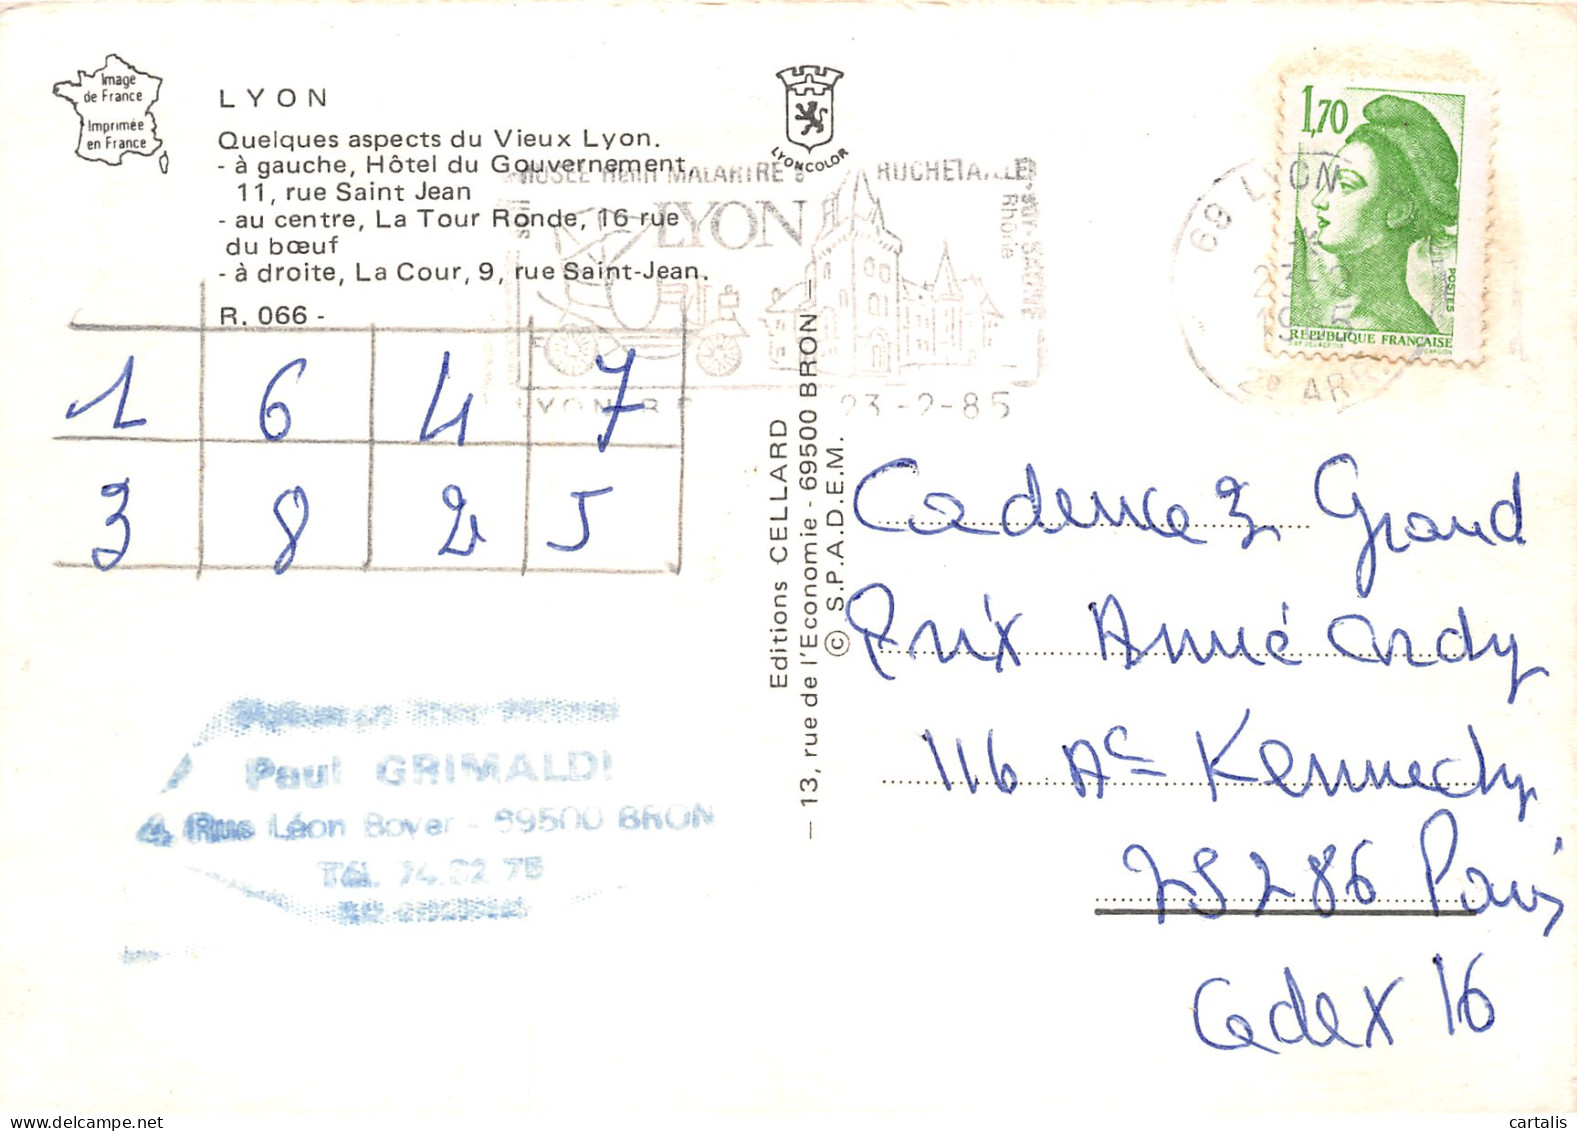 Image
de France
Imprimée
en France
LYON
Quelques aspects du Vieux Lyon.
- à gauche, Hôtel du Gouvernement,
11, rue Saint Jean
- au centre, La Tour Ronde, 16 rue
du bœuf
- à droite, La Cour, 9, rue Saint-Jean.
R. 066 -
LYONCOLOR
MUSEE Henri MALARTRE
ROCHETAILLEE
SUR-SAONE
Rhône
LYON
23-2-85
69 LYON
2e ARR
1,70
POSTES
REPUBLIQUE FRANÇAISE
1 6 4 7
3 8 2 5
Editions CELLARD
— 13, rue de l'Economie - 69500 BRON —
© S.P.A.D.E.M.
Cadence 3 Grand
Prix Année Cardy
116 Ae Kennedy
75286 Paris
Cedex 16
Paul GRIMALDI
4, Rue Léon Bover - 69500 BRON
Tél. 74.02 75
cartalis